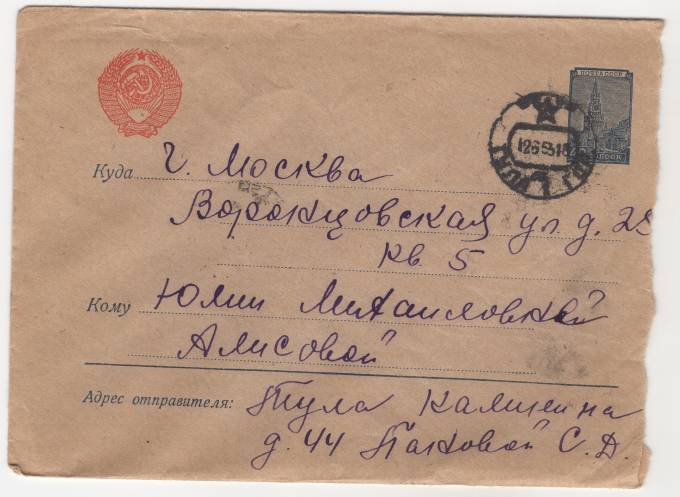 ПОЧТА СССР
12653 18
Куда г. Москва
Воронцовская ул д. 25
кв 5
Кому Юлии Михаиловной
Алисовой
Адрес отправителя: Тула Калинина
д. 44 Пановой С. Д.